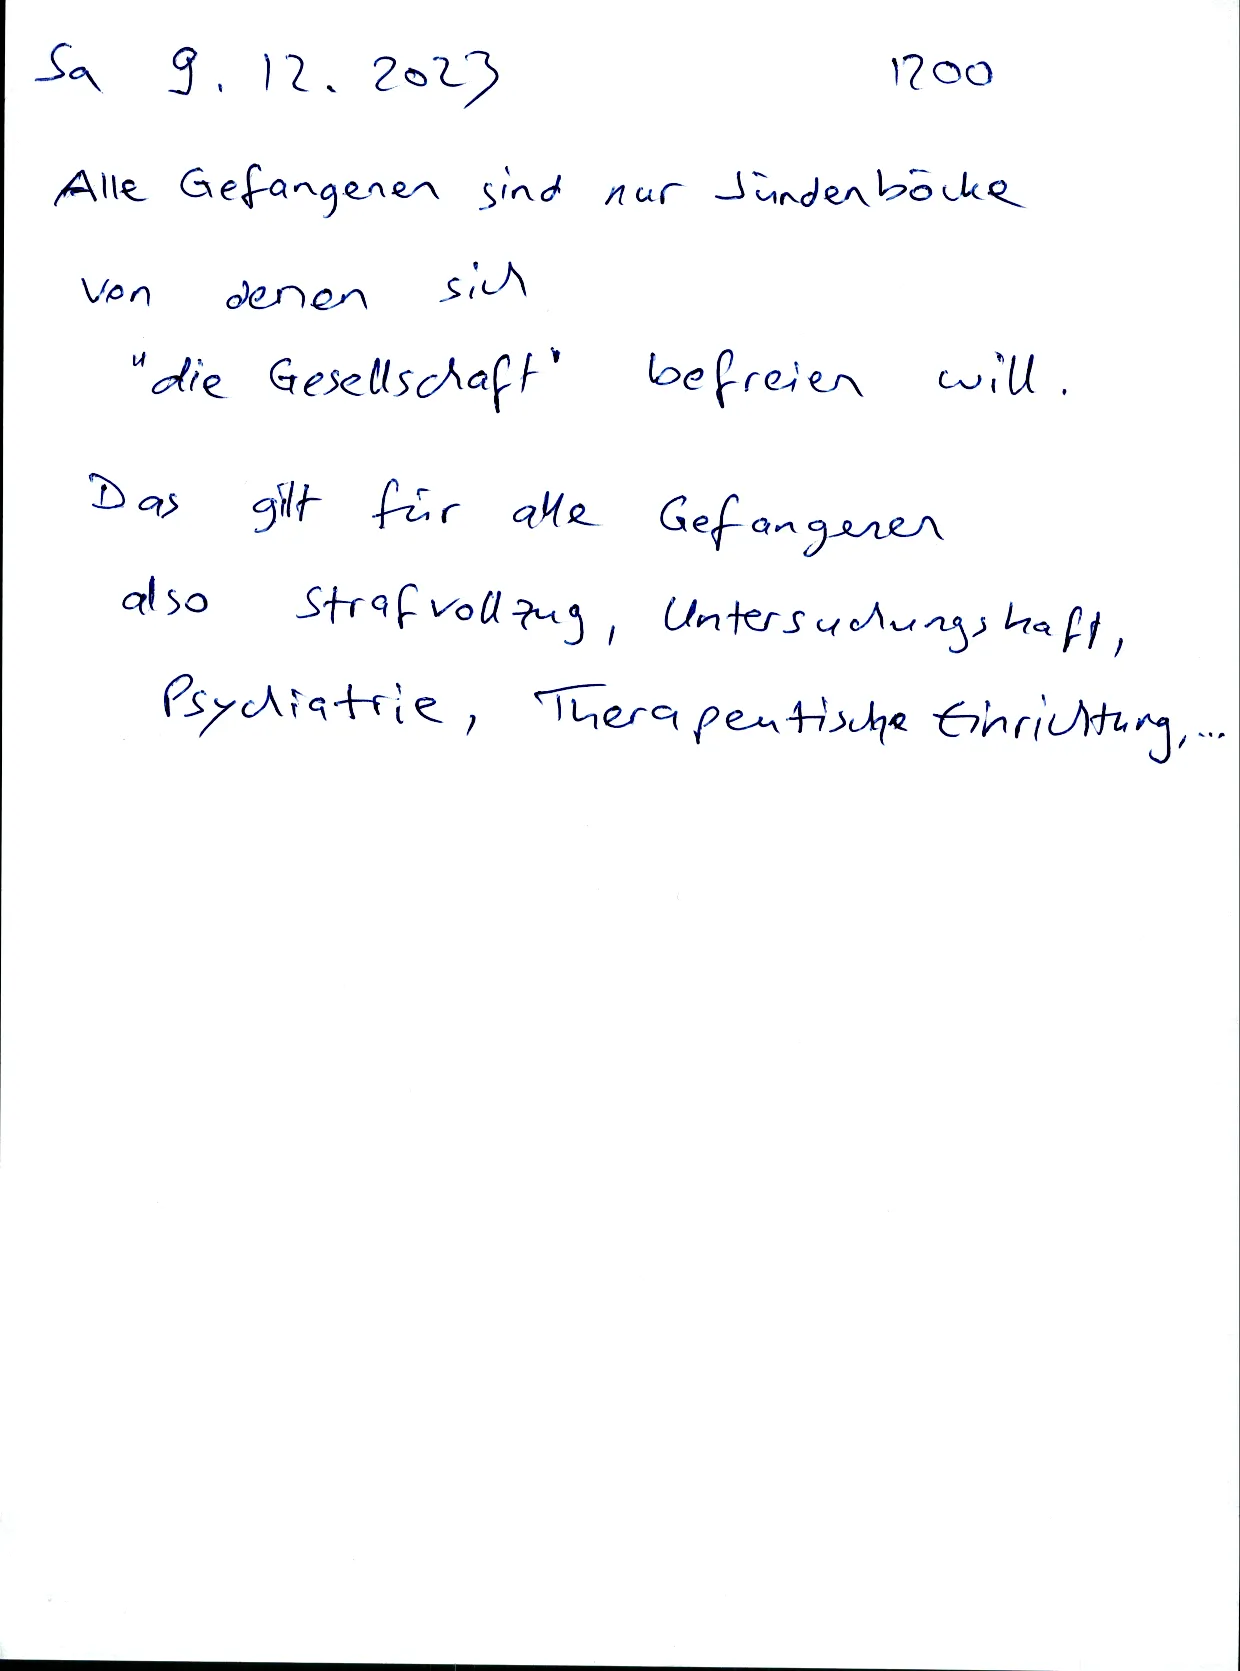 Sa 9. 12. 2023 1200
Alle Gefangenen sind nur Sündenböcke
von denen sich
"die Gesellschaft" befreien will.
Das gilt für alle Gefangenen
also Strafvollzug, Untersuchungshaft,
Psychiatrie, Therapeutische Einrichtung,...